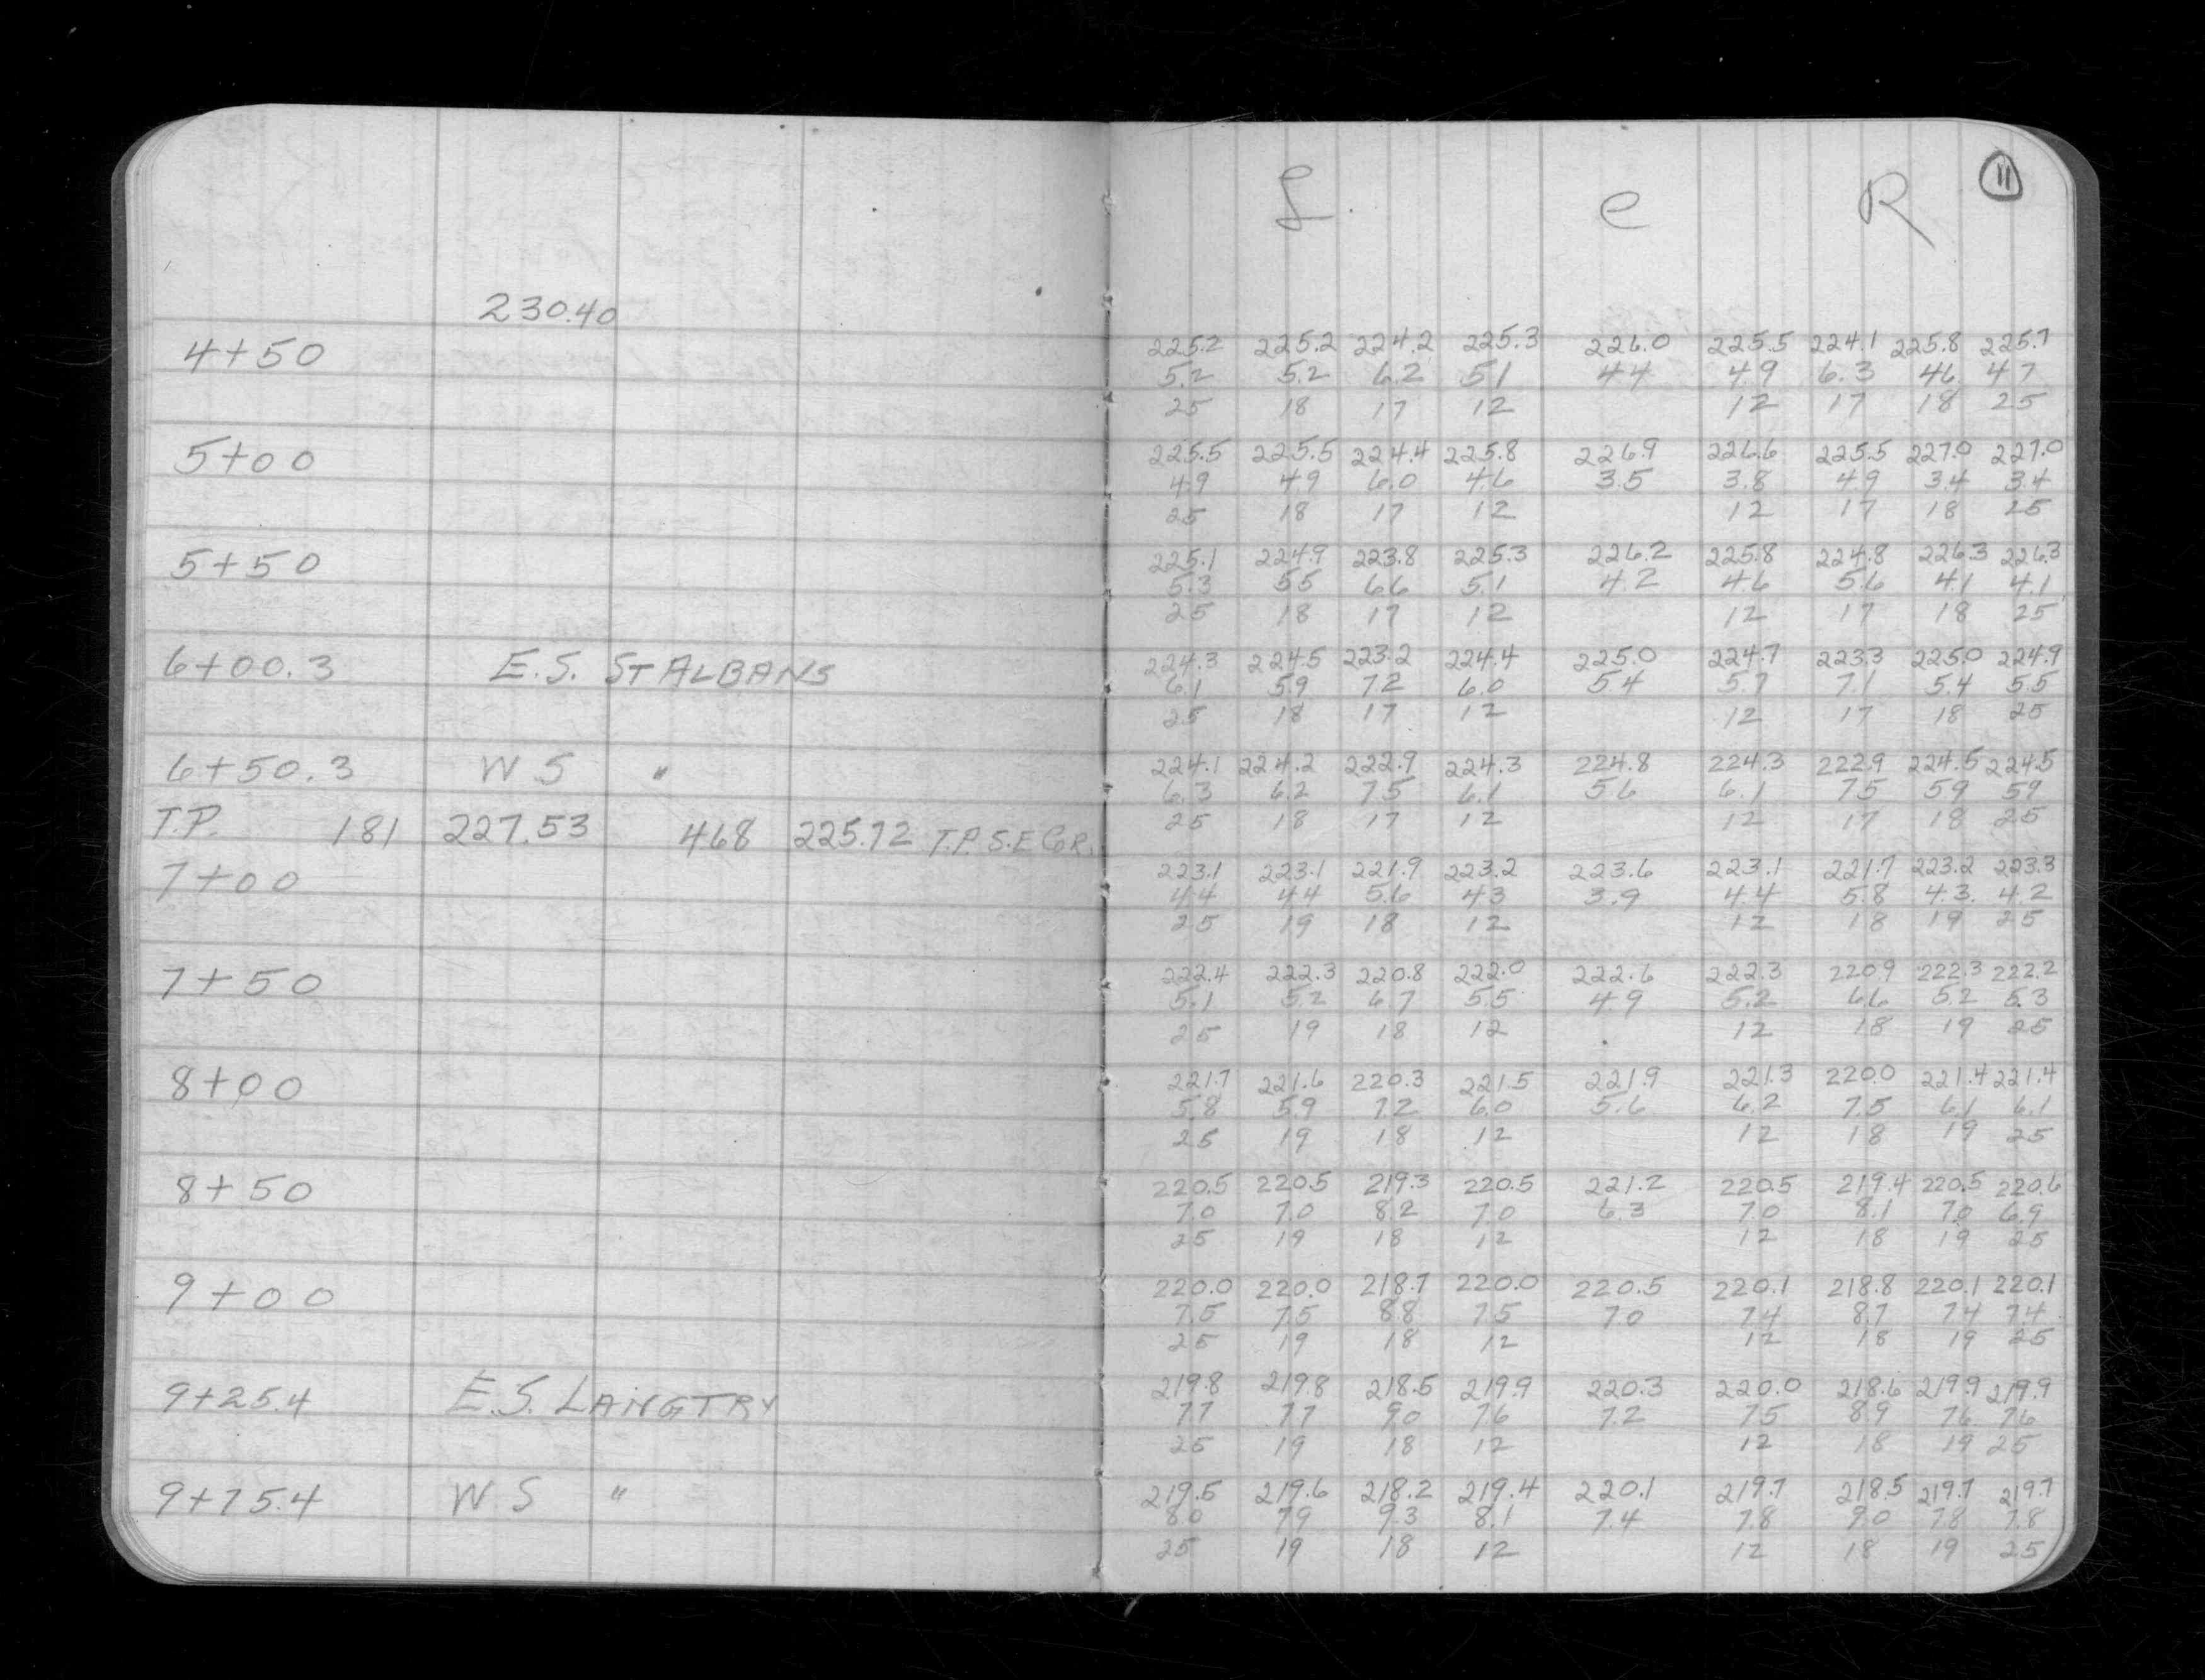 L. C R 11
230.40
4+50 225.2 225.2 224.2 225.3 226.0 225.5 224.1 225.8 225.7
5.2 5.2 6.2 51 44 49 6.3 46 47
25 18 17 12 12 17 18 25
5+00 225.5 225.5 224.4 225.8 226.9 226.6 225.5 227.0 227.0
49 49 6.0 46 3.5 3.8 49 3.4 3.4
25 18 17 12 12 17 18 25
5+50 225.1 224.9 223.8 225.3 226.2 225.8 224.8 226.3 226.3
5.3 55 66 5.1 4.2 46 56 4.1 4.1
25 18 17 12 12 17 18 25
6+00.3 E.S. ST ALBANS 224.3 224.5 223.2 224.4 225.0 224.7 223.3 225.0 224.9
6.1 59 72 6.0 54 5.7 7.1 5.4 55
25 18 17 12 12 17 18 25
6+50.3 W S " 224.1 224.2 222.9 224.3 224.8 224.3 222.9 224.5 224.5
6.3 6.2 75 6.1 56 6.1 75 59 59
25 18 17 12 12 17 18 25
T.P. 181 227.53 468 225.72 T.P. S.E COR.
7+00 223.1 223.1 221.9 223.2 223.6 223.1 221.7 223.2 223.3
44 44 5.6 43 3.9 44 5.8 4.3. 4.2
25 19 18 12 12 18 19 25
7+50 222.4 222.3 220.8 222.0 222.6 222.3 220.9 222.3 222.2
5.1 5.2 6.7 5.5 4.9 5.2 6.6 52 5.3
25 19 18 12 12 18 19 25
8+00 221.7 221.6 220.3 221.5 221.9 221.3 220.0 221.4 221.4
5.8 59 72 6.0 5.6 6.2 7.5 6.1 6.1
25 19 18 12 12 18 19 25
8+50 220.5 220.5 219.3 220.5 221.2 220.5 219.4 220.5 220.6
7.0 7.0 8.2 7.0 6.3 7.0 8.1 7.0 6.9
25 19 18 12 12 18 19 25
9+00 220.0 220.0 218.7 220.0 220.5 220.1 218.8 220.1 220.1
7.5 75 88 75 70 74 8.7 74 7.4
25 19 18 12 12 18 19 25
9+25.4 E.S. LANGTRY 219.8 219.8 218.5 219.9 220.3 220.0 218.6 219.9 219.9
77 77 90 76 72 75 89 76 76
25 19 18 12 12 18 19 25
9+75.4 W S " 219.5 219.6 218.2 219.4 220.1 219.7 218.5 219.7 219.7
80 79 9.3 8.1 7.4 7.8 9.0 7.8 7.8
25 19 18 12 12 18 19 25